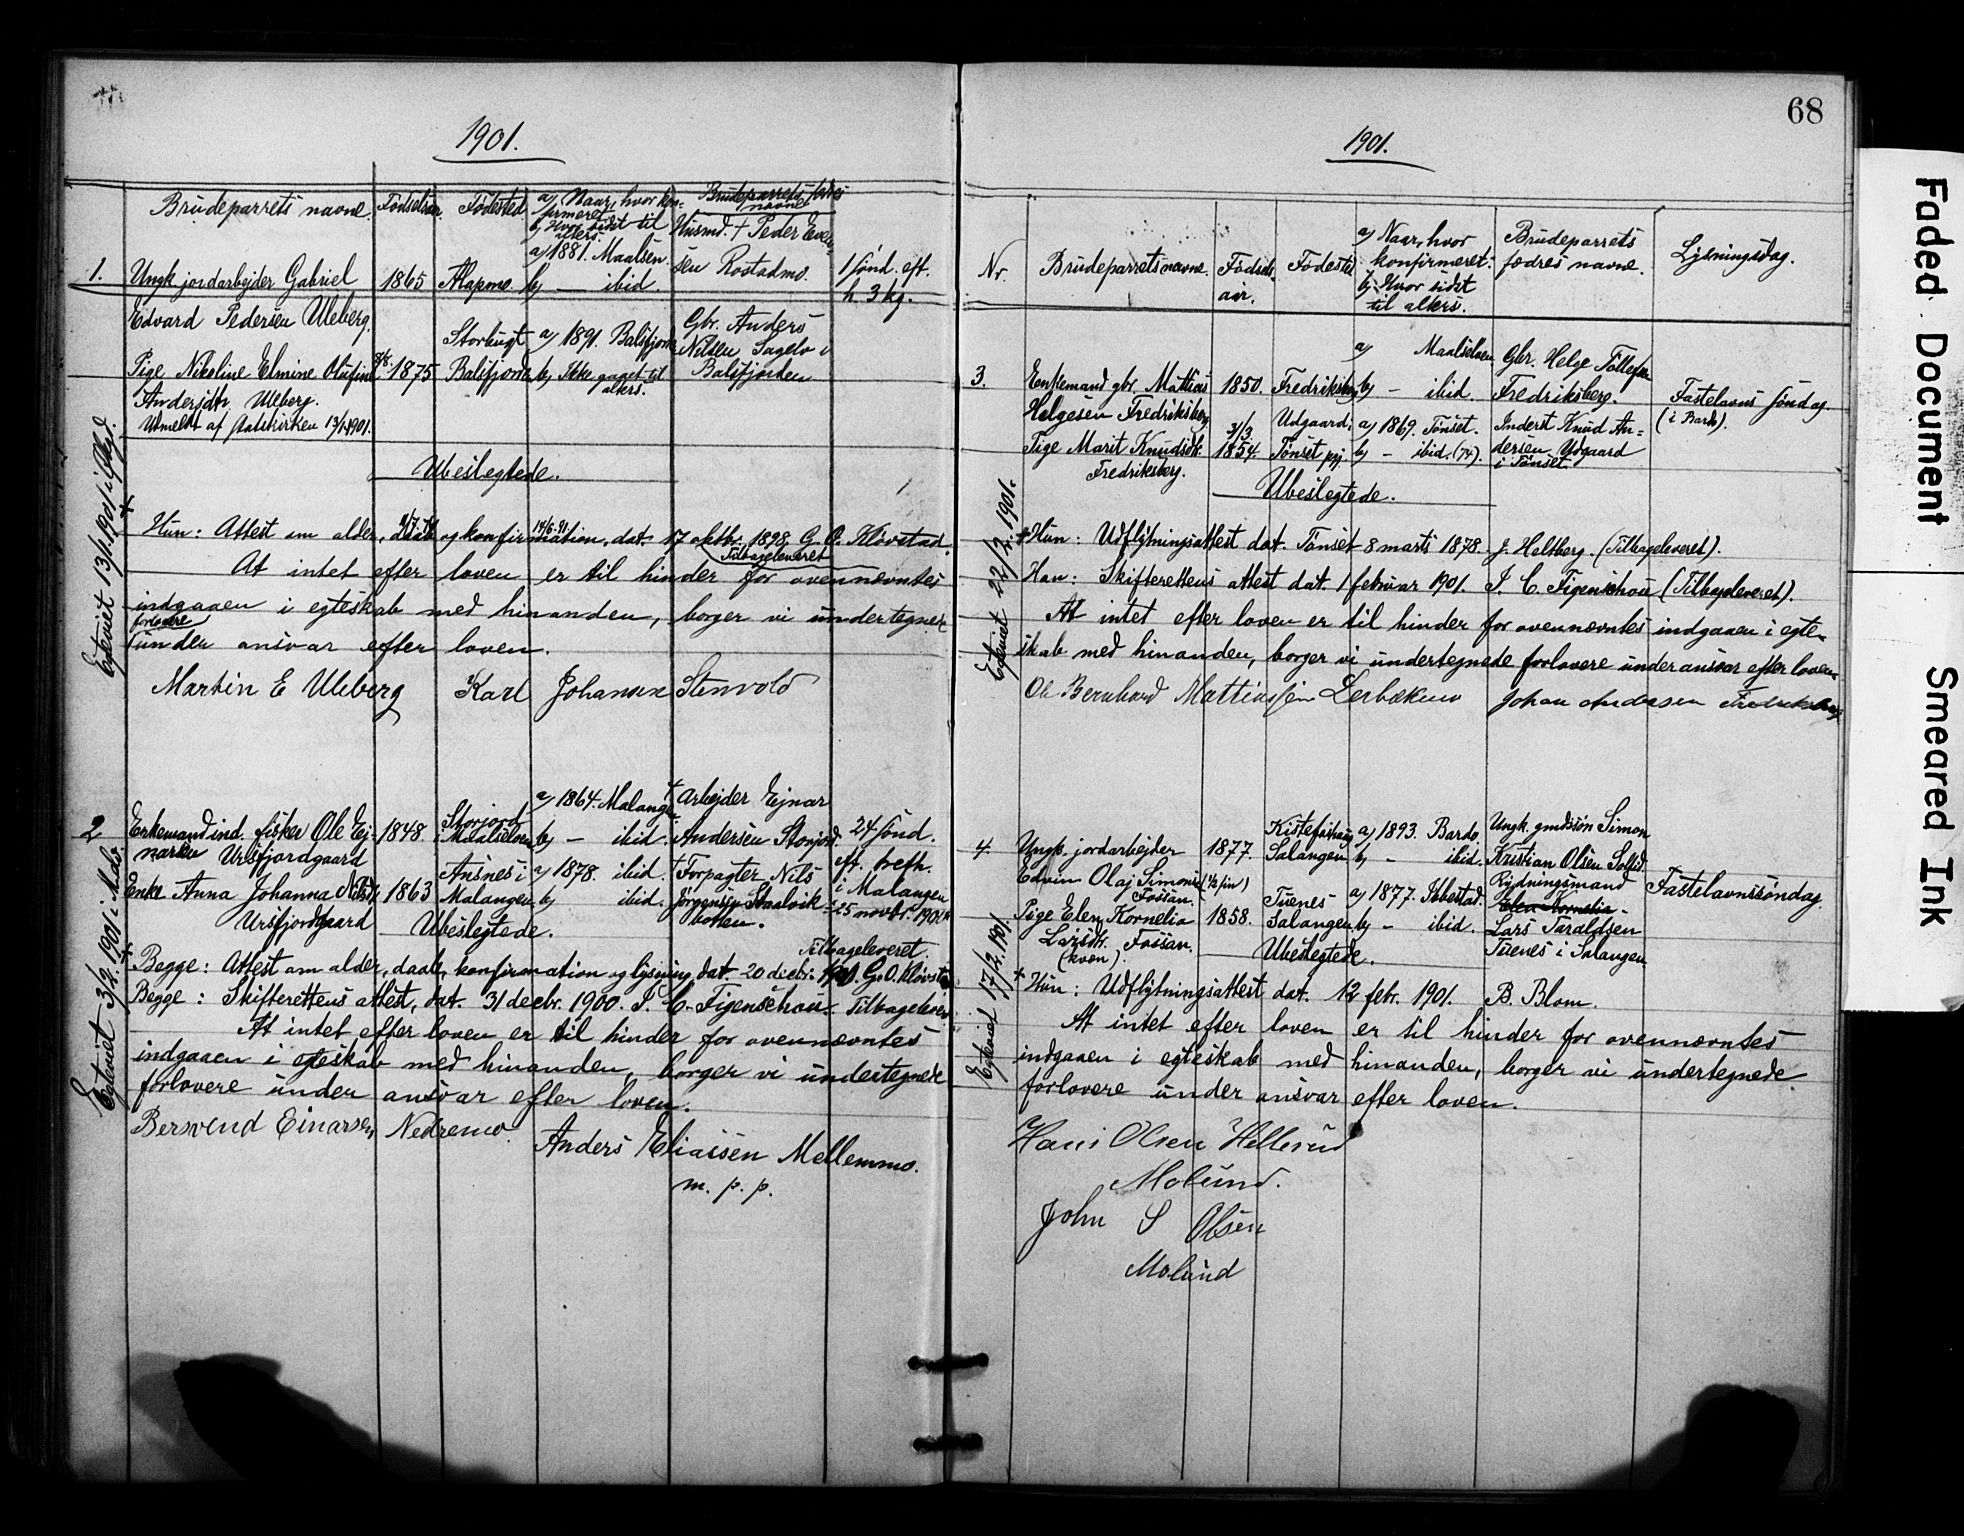 1901.
Brudeparrets navne. Fødselsaar. Fødested a) Naar, hvor kon=
firmeret
b) Hvor sidst til
alters.
Brudeparrets fædres
navne
1. Ungk. jordarbejder Gabriel
Edvard Pedersen Uleberg.
1865 Alapmo.
a) 1881. Maalselv.
b) — ibid.
Husmd. † Peder Even=
sen Rostadmo.
1 sønd. eft.
h. 3 kg.
Pige Nikoline Elmine Olufine
Andersdtr Uleberg.
Utmeldt af statskirken 13/1 1901.
1875
Storbugt
Balsfjord
a) 1891. Balsfjord
b) Ikke gaaet til
alters.
Gbr. Anders
Nilsen Sagelv i
Balsfjorden
Ubeslegtede.
Hun: Attest om alder, daab og konfirmation, dat. 17 oktbr. 1898. G. O. Kløvstad.
Tilbageleveret
At intet efter loven er til hinder for ovennævntes
indgaaen i egteskab med hinanden, borger vi undertegnede
forlovere
under ansvar efter loven.
Martin E Uleberg Karl Johansen Stenvold
Egteviet 13/1 1901
2 Enkemand ind. fisker Ole Ej=
narsen Ursfjordgaard
1848.
Storjord
i Maalselven
a) 1864. Malangen
b) — ibid.
† Arbejder Ejnar
Andersen Storjord
24 sønd.
eft. trefh.
i Malangen
25 novbr. 1900
Enke Anna Johanna Nilsdtr.
Ursfjordgaard
1863
Ansnes i
Malangen
a) 1878. ibid.
b) ibid.
† Forpagter Nils
Jørgensen
botten.
Ubeslegtede.
Tilbageleveret.
Begge: Attest om alder, daab, konfirmation og lysning, dat. 20 decbr. G. O. Kløvstad
Begge: Skifterettens attest, dat. 31 decbr. 1900. I. C. Figenschou. Tilbageleveret
At intet efter loven er til hinder for ovennævntes
indgaaen i egteskab med hinanden, borger vi undertegnede
forlovere under ansvar efter loven.
Bersvend Einarsen Nedremo. Anders Eliassen Mellemmo.
m. p. p.
Egteviet 3/2 1901 i Malv.
68
1901.
Nr Brudeparrets navne. Fødsels
aar.
Fødested
a) Naar, hvor
konfirmeret.
b) Hvor sidst
til alters.
Brudeparrets
fædres navne.
Lysningsdag.
3. Enkemand gbr. Mattias
Helgesen Fredriksberg
1850. Fredriksberg
a) Maalselven
b) — ibid.
Gbr. Helge Tollefsen
Fredriksberg.
Fastelavns søndag
(i Bardo).
Pige Marit Knudsdtr.
Fredriksberg.
3/3
1854.
Udgaard,
Tønset pgj.
a) 1869. Tønset.
b) — ibid. (74).
Inderst Knud An=
dersen Udgaard
i Tønset
Ubeslegtede.
Hun: Udflytningsattest dat. Tønset 8 marts 1878. J. Heltberg. (Tilbageleveret).
Han: Skifterettens attest dat. 1 februar 1901. I. C. Figenschou (Tilbageleveret).
At intet efter loven er til hinder for ovennævntes indgaaen i egte=
skab med hinanden, borger vi undertegnede forlovere under ansvar efter loven
Ole Bernhard Mattiassen Lerbækmo Johan Andersen Fredriksberg
Egteviet 22/2 1901.
4. Ungk. jordarbejder
Edvin Olaj Simonsen (1/2 fin)
Fossan.
1877.
Salangen
a) 1893. Bardo.
b) — ibid.
Ungk. gmdssøn Simon
Kristian Olsen
Fastelavnssøndag.
Pige Elen Kornelia
Larsdtr. Fossan.
(kven).
1858.
Tuenes
Salangen
a) 1877. Ibbestad.
b) — ibid.
Rydningsmand
Elen Kornelia
Lars Taraldsen
Tuenes i Salangen
Ubeslegtede.
Hun: Udflytningsattest dat. 12 febr. 1901. B. Blom.
At intet efter loven er til hinder for ovennævntes
indgaaen i egteskab med hinanden, borger vi undertegnede
forlovere under ansvar efter loven.
Hans Olsen Hellerud
Molund.
John S Olsen
Molund
Egteviet 17/2 1901.
Faded Document
Smeared Ink